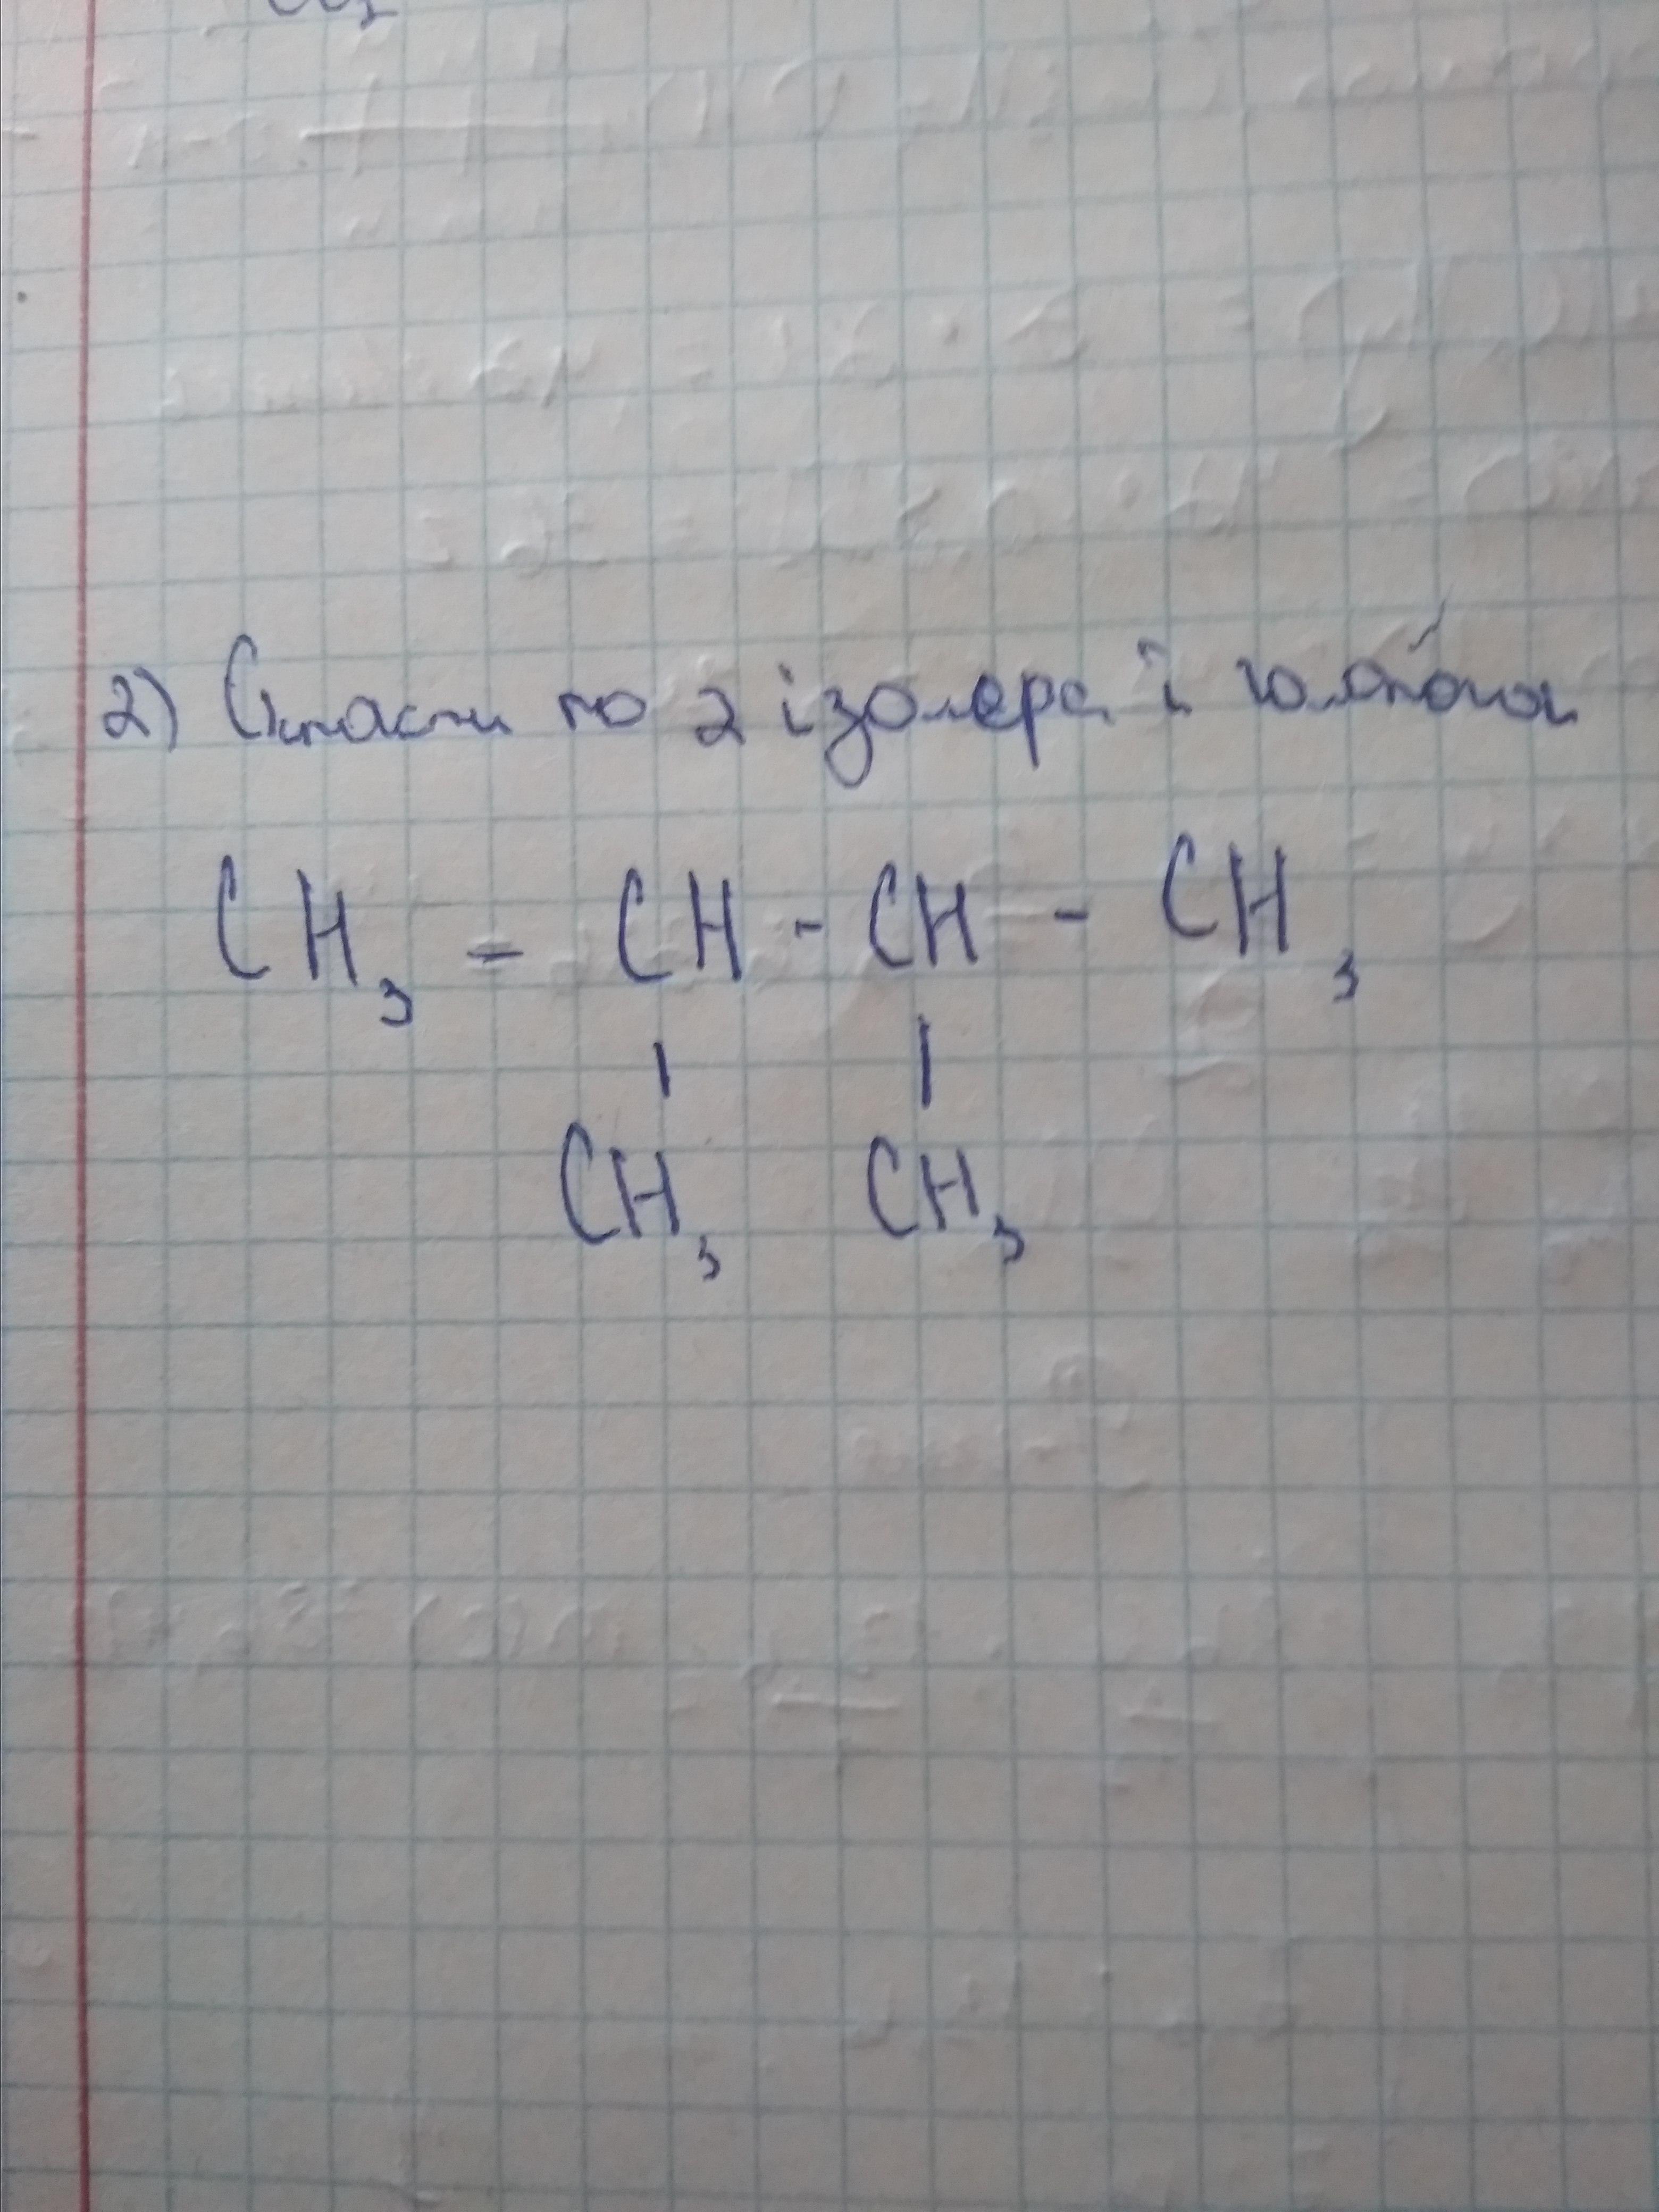 2) Скласти по 2 ізомера й гомолога
CH₃ - CH - CH - CH₃
| |
CH₃ CH₃